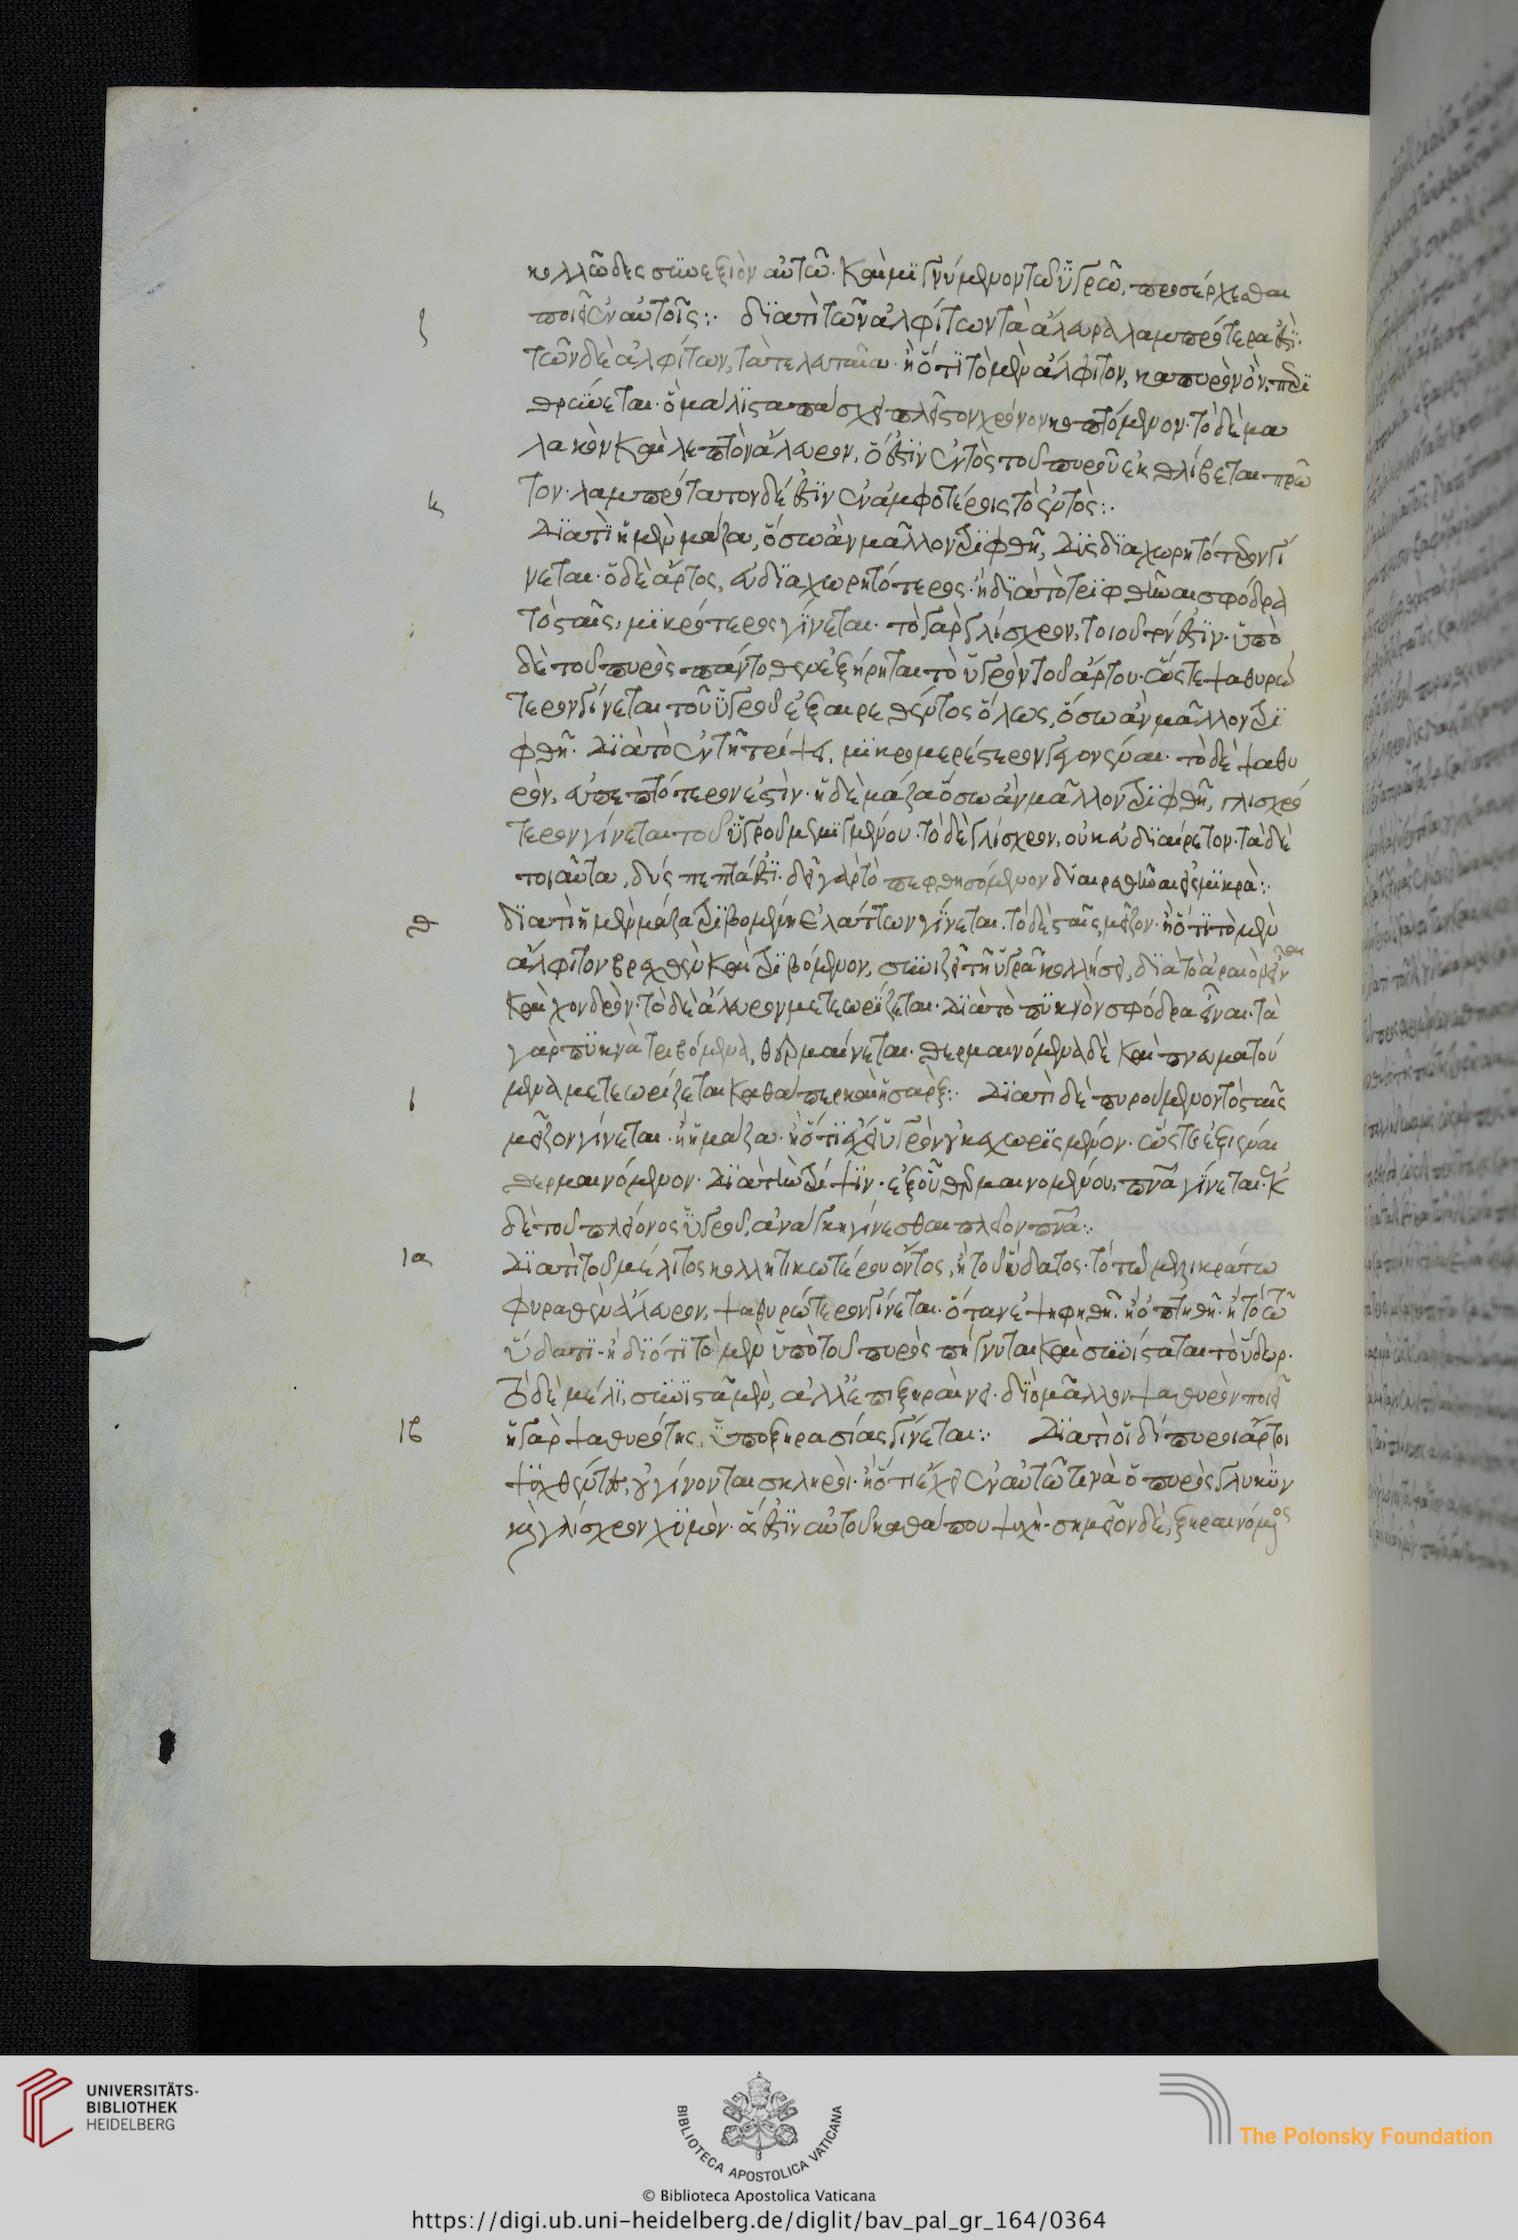 κολλῶδες συνεξιὸν αὐτῶ. καὶ μιγνύμενον τῶ ὑγρῶ, προσέρχεσθαι
ποιεῖ ἐν αὐτοῖς:· διατὶ τῶν ἀλφίτων τὰ ἄλευρα λαμπρότερά ἐστι·
ζ
τῶν δὲ ἀλφίτων, τὰ τελευταῖα· ἢ ὅτι τὸ μὲν ἄλφιτον, καπυρὸν ὂν, περι
θραύεται· ὃ μάλιστα πάσχει πλεῖστον χρόνον κοπτόμενον· τὸ δὲ μα
λακὸν καὶ λεπτὸν ἄλευρον, ὅ ἐστιν ἐντὸς τοῦ πυροῦ ἐκθλίβεται πρῶ
τον· λαμπρότατον δέ ἐστιν ἐν ἀμφοτέροις τὸ ἐντὸς:·
η
Διατὶ ἡ μὲν μάζα, ὅσω ἂν μᾶλλον τριφθῆ, δυσδιαχωρητότερον γί
νεται· ὁ δὲ ἄρτος, εὐδιαχωρητότερος· ἢ διὰ τὸ τριφθῆναι σφόδρα
τὸ σταῖς, μικρότερος γίνεται· τὸ γὰρ γλίσχρον, τοιοῦτόν ἐστιν· ὑπὸ
δὲ τοῦ πυρὸς πάντοθεν ἐξήρηται τὸ ὑγρὸν τοῦ ἄρτου· ὥστε ψαθυρώ
τερον γίνεται τοῦ ὑγροῦ ἐξαιρεθέντος ὅλως, ὅσω ἂν μᾶλλον τρι
φθῆ· διὰ τὸ ἐν τῆ τρίψει, μικρομερέστερον γεγονέναι· τὸ δὲ ψαθυ
ρὸν, εὐπεπτότερον ἐστὶν· ἡ δὲ μάζα ὅσω ἂν μᾶλλον τριφθῆ, γλισχρό
τερον γίνεται τοῦ ὑγροῦ μεμιγμένου· τὸ δὲ γλίσχρον, οὐκ εὐδιαίρετον· τὰ δὲ
τοιαῦτα, δύσπεπτά ἐστι· δεῖ γὰρ τὸ πεφθησόμενον διαιρεθῆναι εἰς μικρὰ:·
θ
διατὶ ἡ μὲν μάζα τριβομένη ἐλάττων γίνεται· τὸ δὲ σταῖς, μεῖζον· ἢ ὅτι τὸ μὲν
ἄλφιτον βραχθὲν καὶ τριβόμενον, συνίζει τῆ ὑγρᾶ κολλήσει, διὰ τὸ ἀραιὸν εἶναι
καὶ χονδρὸν· τὸ δὲ ἄλευρον μετεωρίζεται· διὰ τὸ πυκνὸν σφόδρα εἶναι· τὰ
γὰρ πυκνὰ τριβόμενα, θερμαίνεται· θερμαινόμενα δὲ καὶ πνευματού
μενα μετεωρίζεται καθάπερ καὶ ἡ σὰρξ:· Διατὶ δὲ πυρούμενον τὸ σταῖς
ι
μεῖζον γίνεται· ἢ ἡ μάζα· ἢ ὅτι ἔχει ὑγρὸν οὐ κεχωρισμένον· ὥστε ἐξιέναι
θερμαινόμενον· διὰ τὴν τρίψιν· ἐξ οὗ θερμαινομένου, πνεῦμα γίνεται· ἐκ
δὲ τοῦ πλείονος ὑγροῦ, ἀνάγκη γίνεσθαι πλεῖον πνεῦμα:·
ια
Διατὶ τοῦ μέλιτος κολλητικωτέρου ὄντος, ἢ τοῦ ὕδατος· τὸ τῶ μελικράτω
φυραθὲν ἄλευρον, ψαθυρώτερον γίνεται· ὅταν ἑψηθῆ· ἢ ὀπτηθῆ· ἢ τὸ τῶ
ὕδατι· ἢ διότι τὸ μὲν ὑπὸ τοῦ πυρὸς πήγνυται καὶ συνίσταται τὸ ὕδωρ·
τὸ δὲ μέλι, συνιστᾶ μὲν, ἀλλ' ἐπιξηραίνει· διὸ μᾶλλον ψαθυρὸν ποιεῖ
ἡ γὰρ ψαθυρότης, ὑπὸ ξηρασίας γίνεται:· Διατὶ οἱ δίπυροι ἄρτοι
ιβ
ψυχθέντες, οὐ γίνονται σκληροὶ· ἢ ὅτι ἔχει ἐν αὐτῶ τινὰ ὁ πυρὸς γλυκὺν
καὶ γλίσχρον χυμὸν· ὅ ἐστιν αὐτοῦ καθάπου ψυχὴ· σημεῖον δὲ, ξηραινόμενος
UNIVERSITÄTS-
BIBLIOTHEK
HEIDELBERG
BIBLIOTECA APOSTOLICA VATICANA
The Polonsky Foundation
© Biblioteca Apostolica Vaticana
https://digi.ub.uni-heidelberg.de/diglit/bav_pal_gr_164/0364